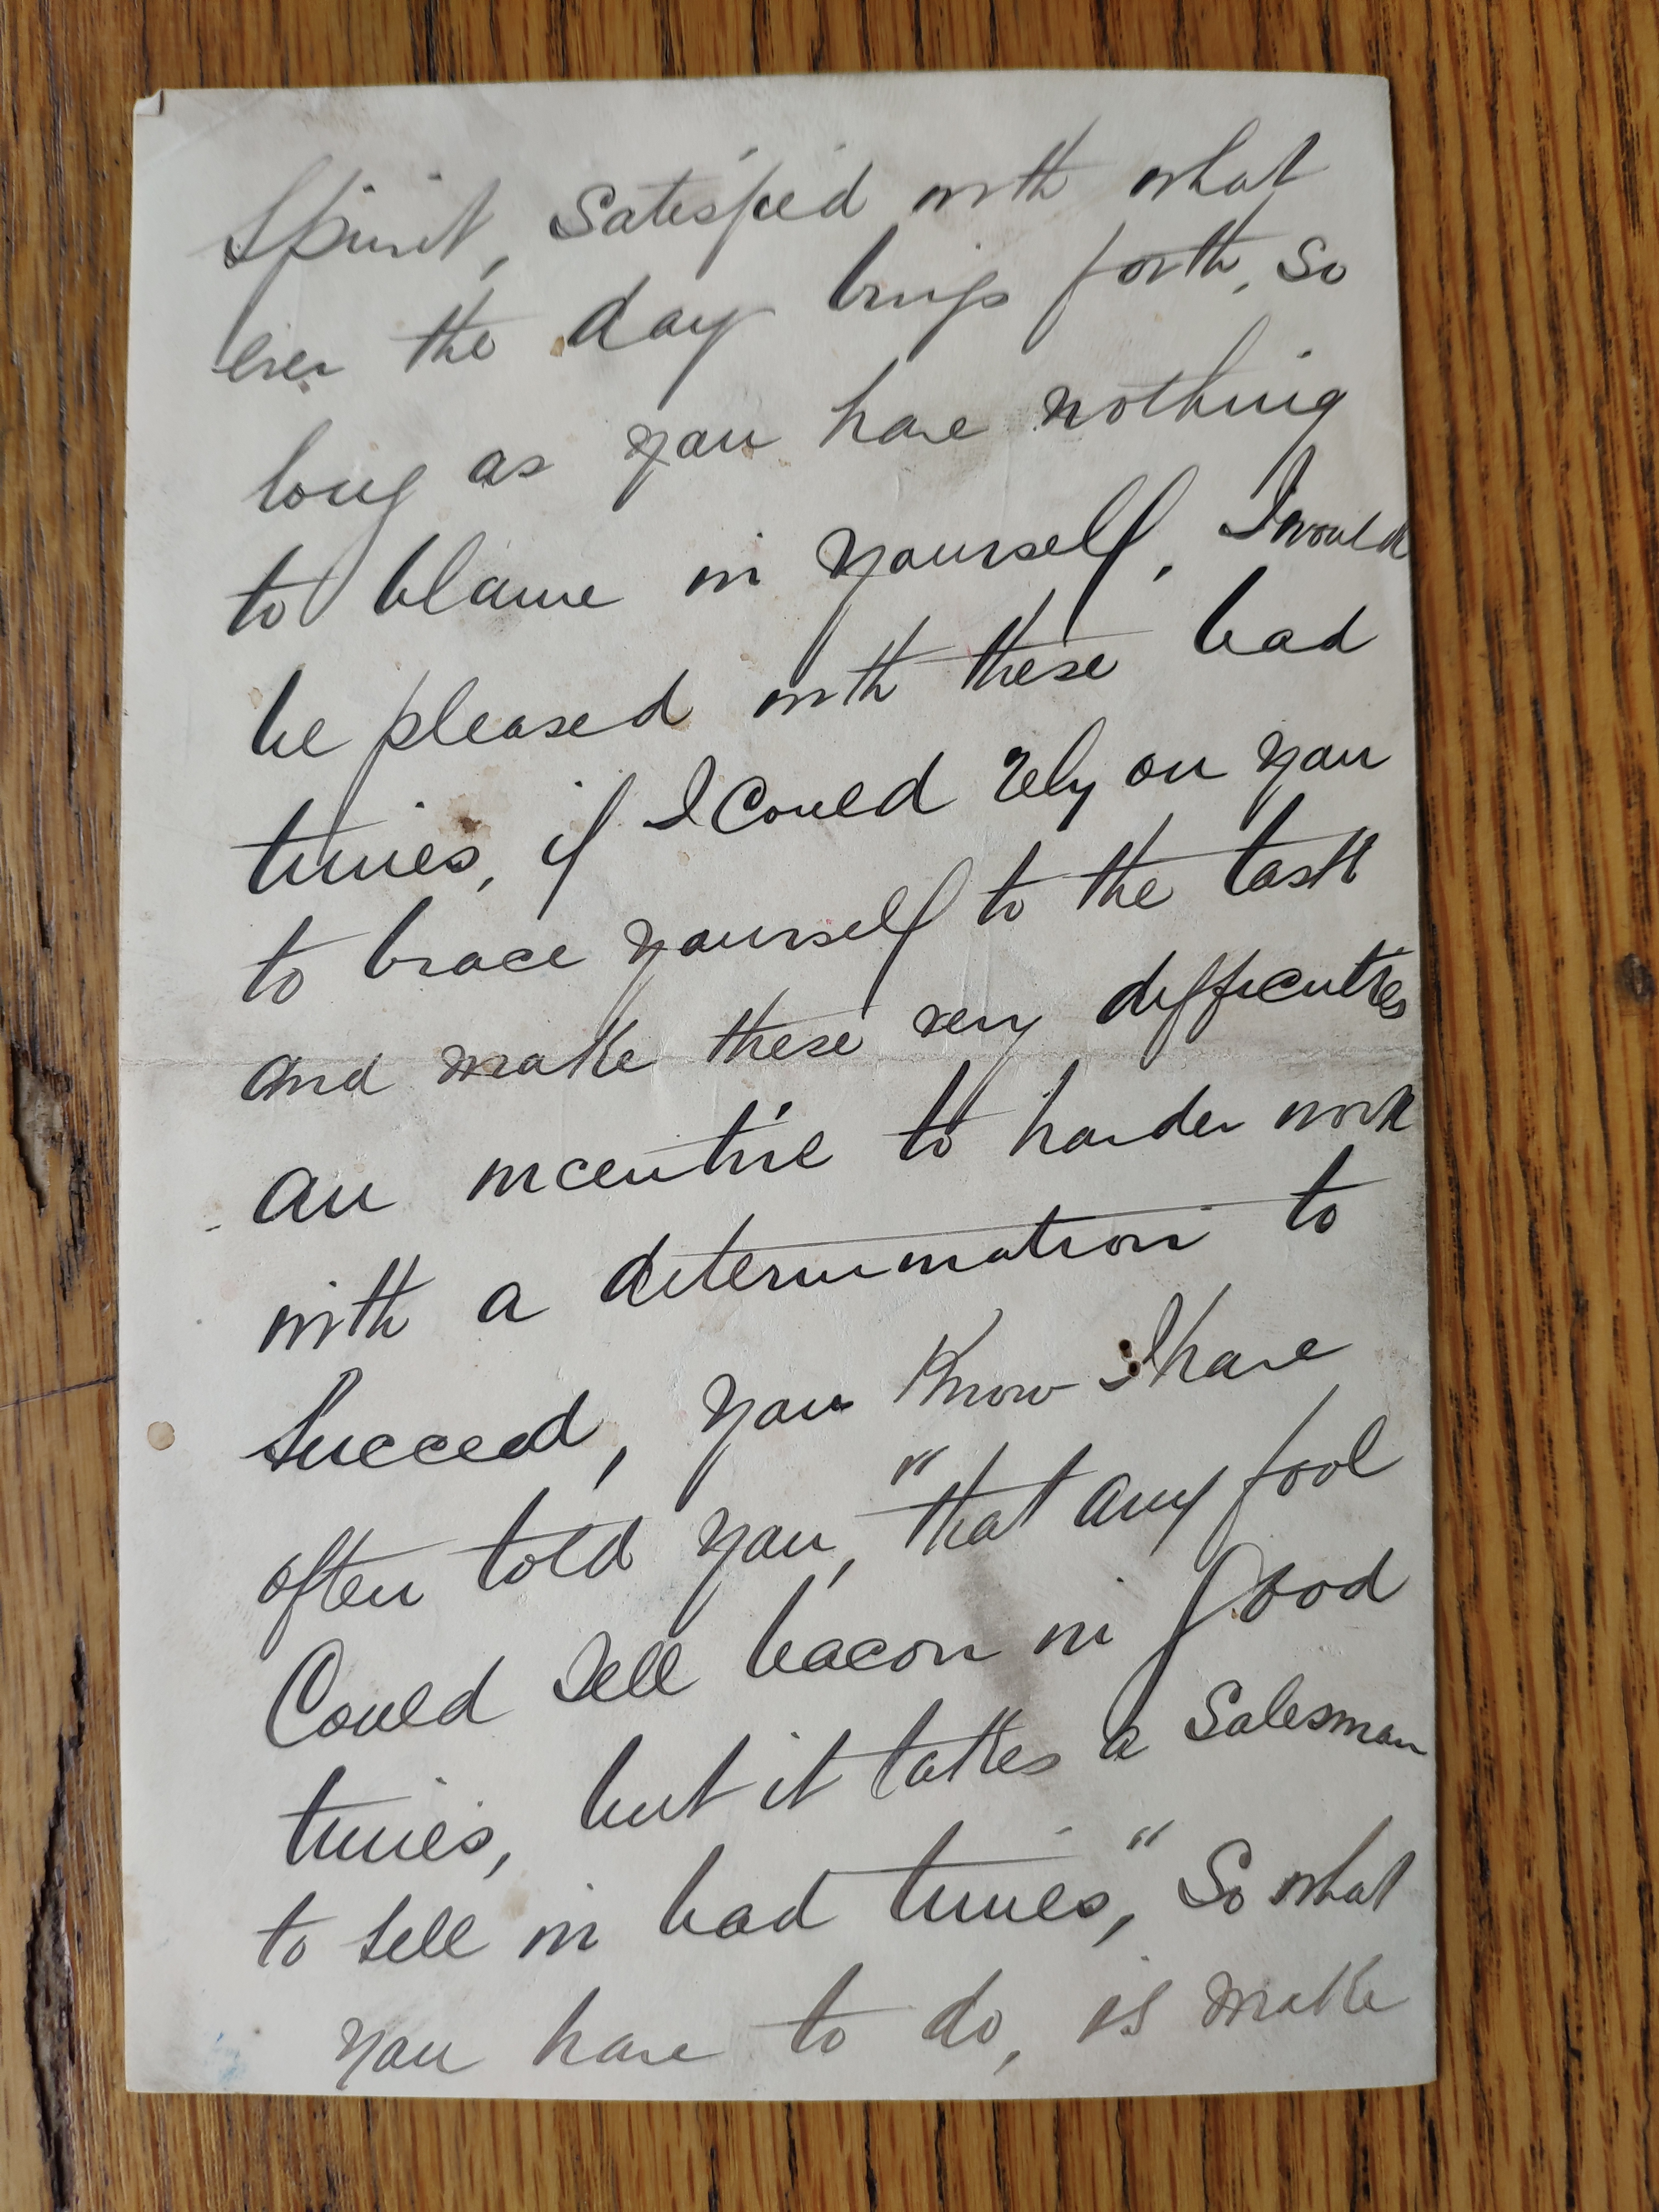 Spirit, Satisfied with what
ever the day brings forth, so
long as you have nothing
to blame in yourself, I would
be pleased with these bad
times, if I Could rely on you
to brace yourself to the task
and make these very difficulties
an incentive to harder work
with a determination to
Succeed, you Know I have
often told you, "that any fool
Could Sell bacon in good
times, but it takes a Salesman
to sell in bad times," So what
you have to do, is make